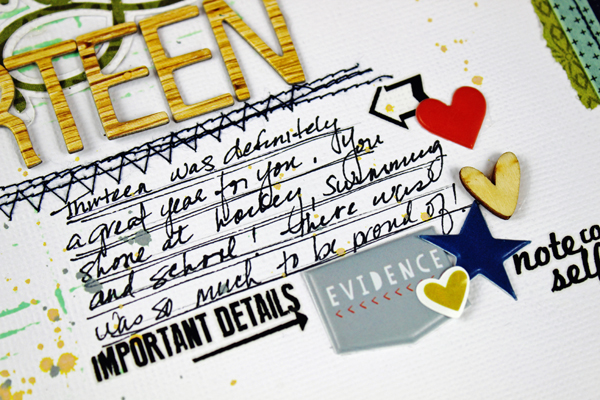 RTEEN
thirteen was definitely
a great year for you. You
shone at hockey, swimming
and school! There was
was so much to be proud of!
EVIDENCE
IMPORTANT DETAILS
note co
self